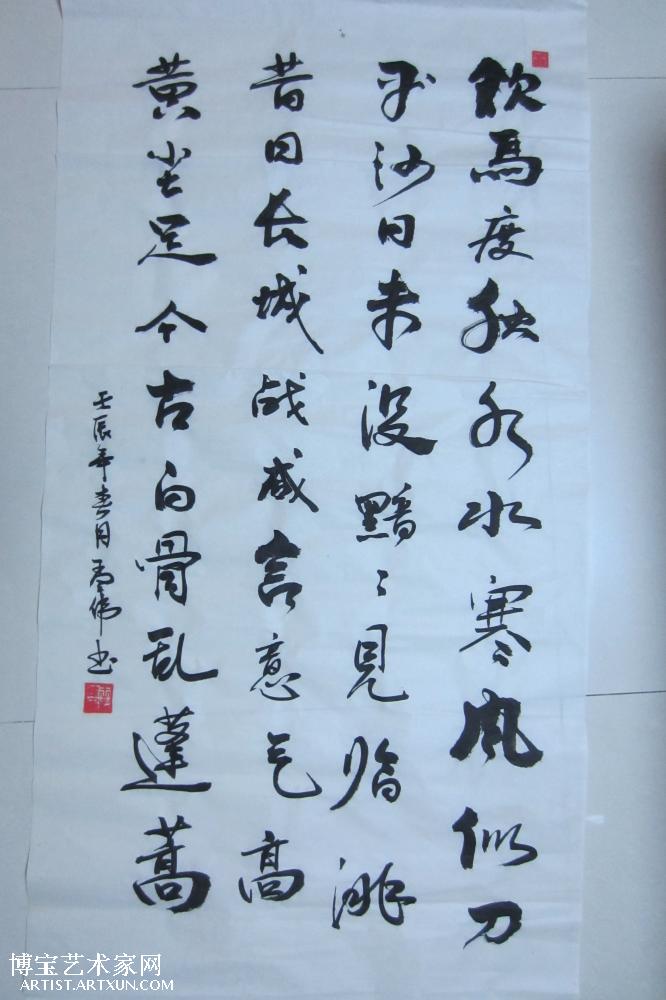 飲馬度秋水水寒风似刀
平沙日未没黯〻見临洮
昔日长城战咸言意气高
黄尘足今古白骨乱蓬蒿
壬辰年春月伟书
博宝艺术家网
ARTIST.ARTXUN.COM